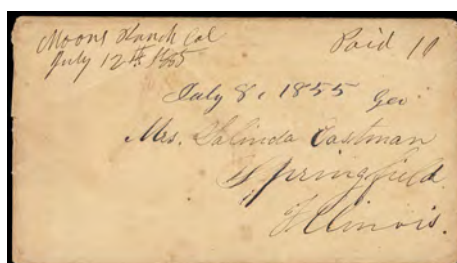 Moons Ranch Cal
July 12th 1855
Paid 10
July 8, 1855 Geo
Mrs. Salinda Eastman
Springfield
Illinois.